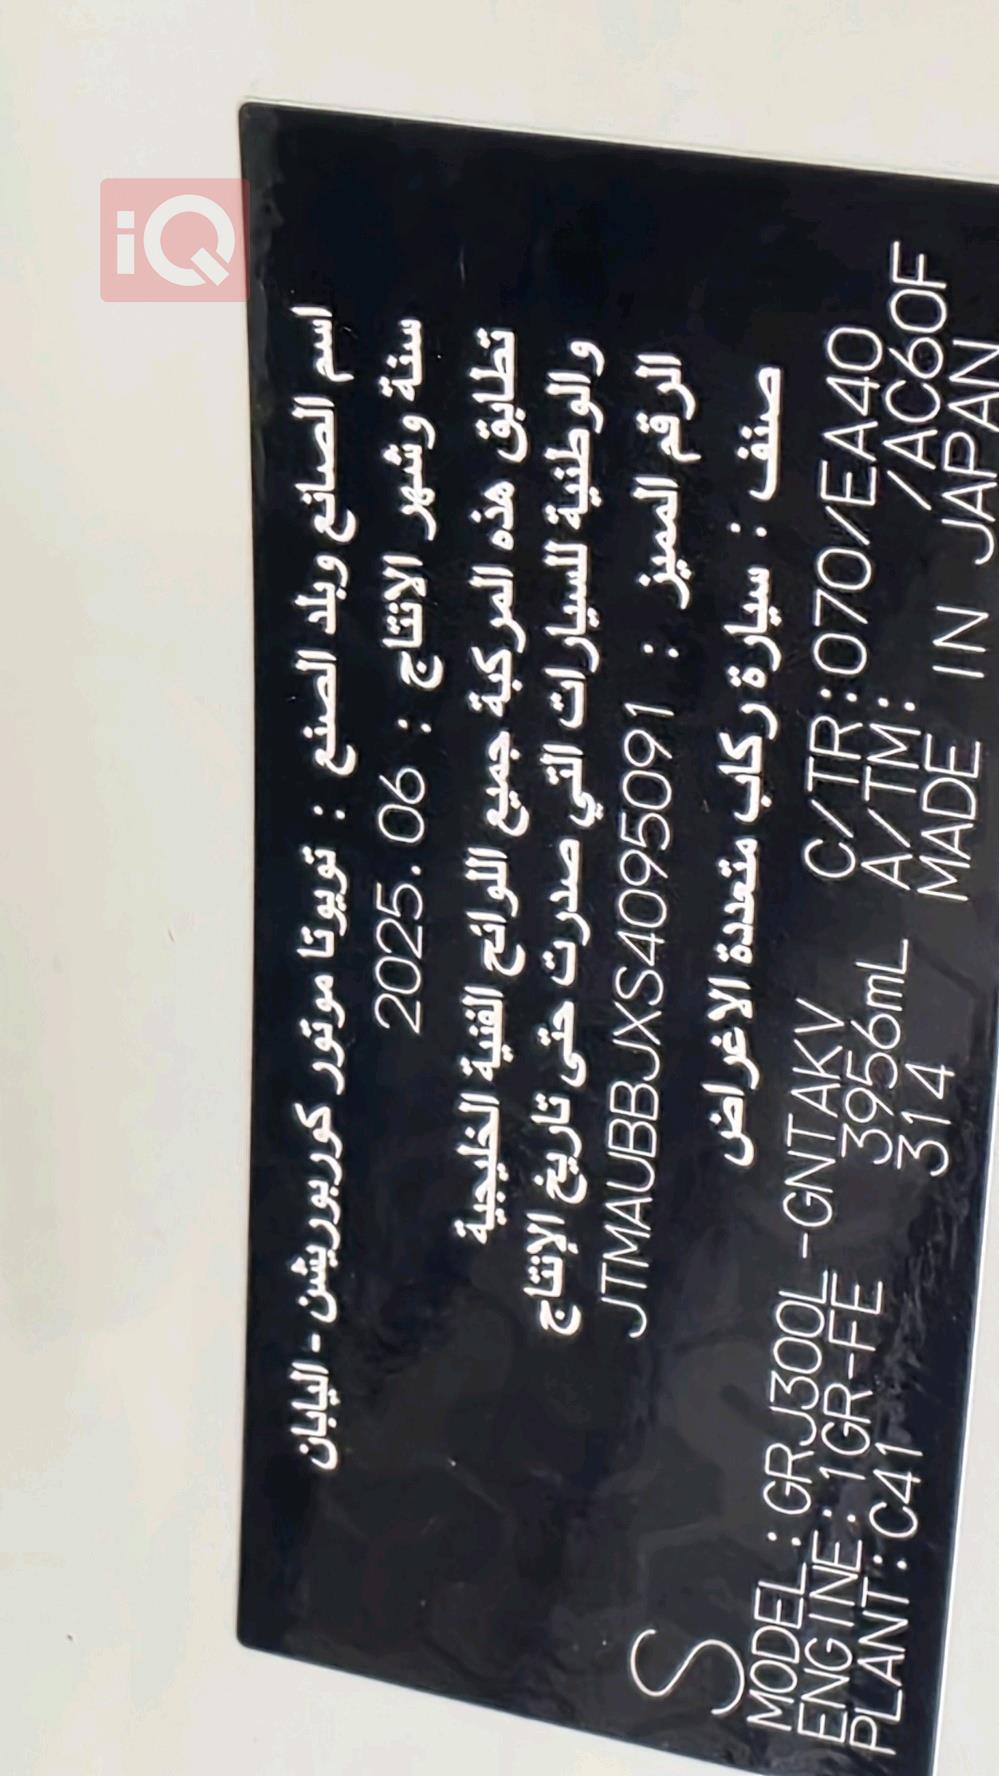 iQ
اسم الصانع وبلد الصنع : تويوتا موتور كوربوريشن - اليابان
سنة وشهر الانتاج : 2025.06
تطابق هذه المركبة جميع اللوائح الفنية الخليجية
والوطنية للسيارات التي صدرت حتى تاريخ الإنتاج
الرقم المميز : JTMAUBBJXS4095091
صنف : سيارة ركاب متعددة الاغراض
S
MODEL:GRJ300L-GNTAKV C/TR:070/EA40
ENGINE:1GR-FE 3956mL A/TM: /AC60F
PLANT:C41 314 MADE IN JAPAN